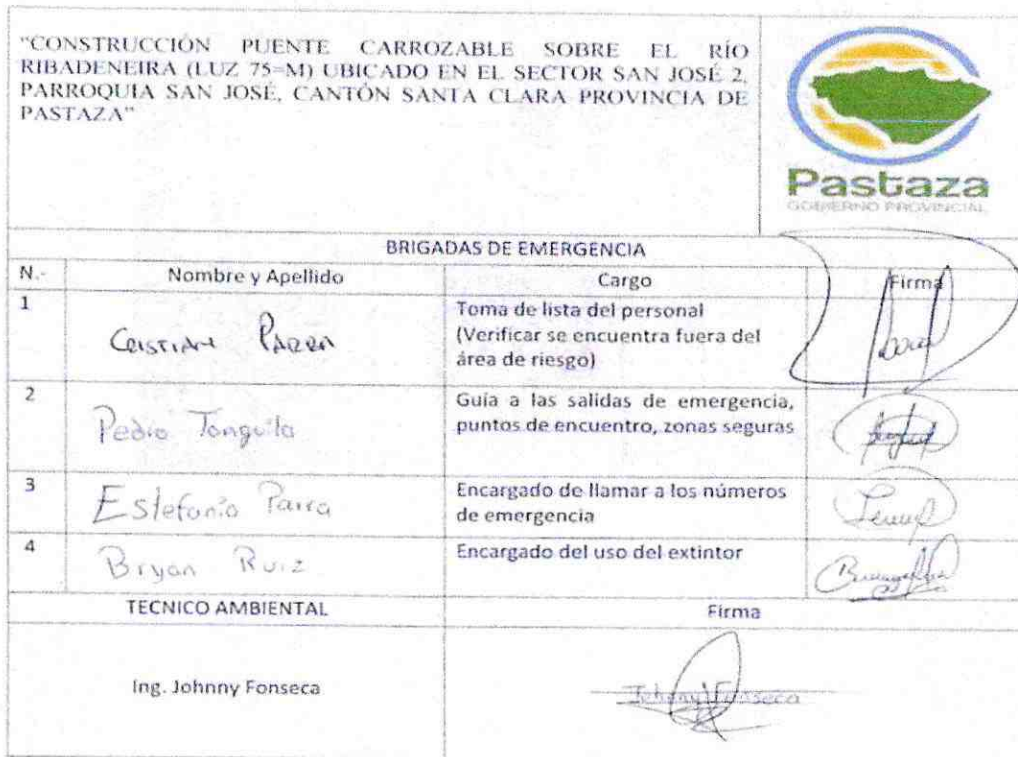 "CONSTRUCCIÓN PUENTE CARROZABLE SOBRE EL RÍO
RIBADENEIRA (LUZ 75=M) UBICADO EN EL SECTOR SAN JOSÉ 2,
PARROQUIA SAN JOSÉ, CANTÓN SANTA CLARA PROVINCIA DE
PASTAZA"
Pastaza
GOBIERNO PROVINCIAL
BRIGADAS DE EMERGENCIA
N.- Nombre y Apellido Cargo Firma
1 Cristian Parra Toma de lista del personal
(Verificar se encuentra fuera del
área de riesgo)
2 Pedro Tanguila Guía a las salidas de emergencia,
puntos de encuentro, zonas seguras
3 Estefanía Parra Encargado de llamar a los números
de emergencia
4 Bryan Ruiz Encargado del uso del extintor
TECNICO AMBIENTAL Firma
Ing. Johnny Fonseca Johnny Fonseca